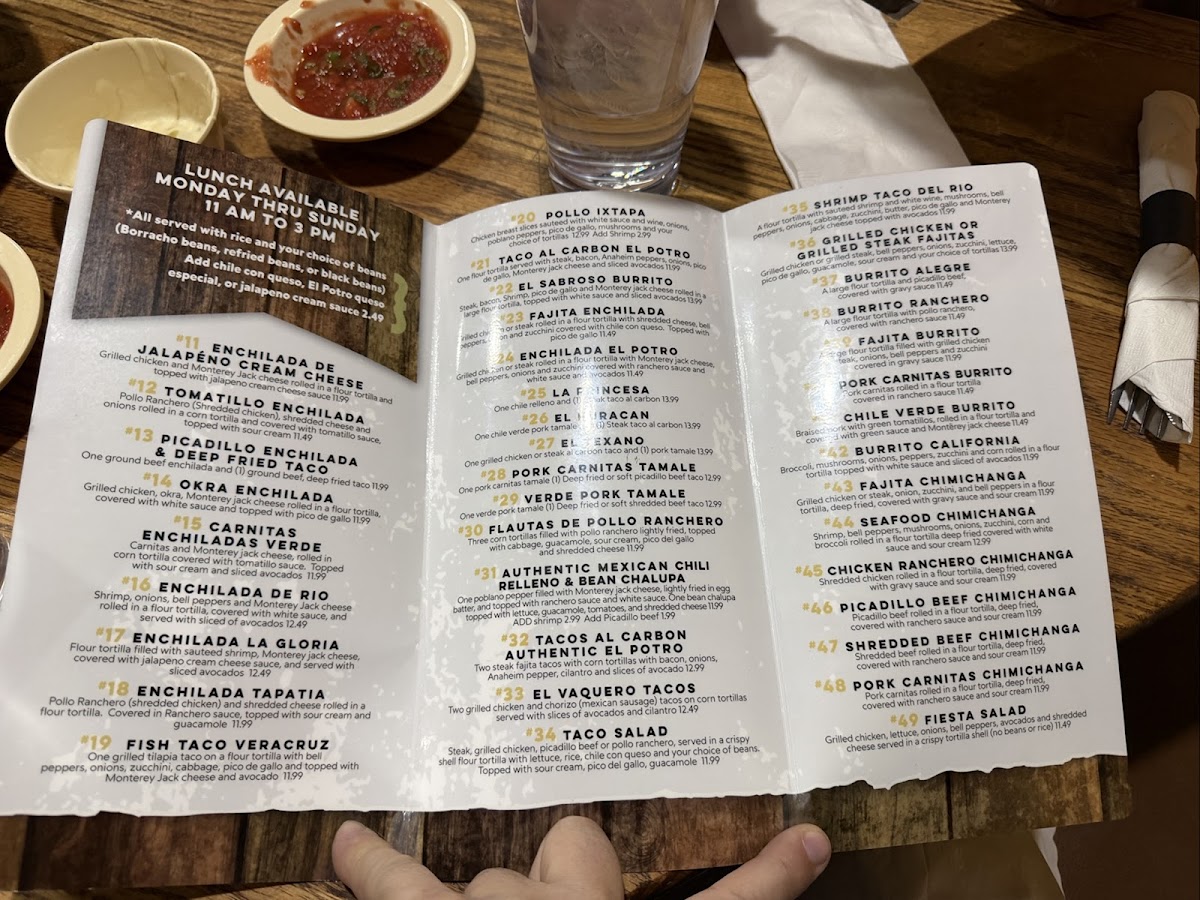 LUNCH AVAILABLE
MONDAY THRU SUNDAY
11 AM TO 3 PM
*All served with rice and your choice of beans
(Borracho beans, refried beans, or black beans)
Add chile con queso, El Potro queso
especial, or jalapeno cream sauce 2.49
#11 ENCHILADA DE
JALAPÉNO CREAM CHEESE
Grilled chicken and Monterey Jack cheese rolled in a flour tortilla and
topped with jalapeno cream cheese sauce 11.99
#12 TOMATILLO ENCHILADA
Pollo Ranchero (Shredded chicken), shredded cheese and
onions rolled in a corn tortilla and covered with tomatillo sauce,
topped with sour cream 11.49
#13 PICADILLO ENCHILADA
& DEEP FRIED TACO
One ground beef enchilada and (1) ground beef, deep fried taco 11.99
#14 OKRA ENCHILADA
Grilled chicken, okra, Monterey jack cheese rolled in a flour tortilla,
covered with white sauce and topped with pico de gallo 11.99
#15 CARNITAS
ENCHILADAS VERDE
Carnitas and Monterey jack cheese, rolled in
corn tortilla covered with tomatillo sauce. Topped
with sour cream and sliced avocados 11.99
#16 ENCHILADA DE RIO
Shrimp, onions, bell peppers and Monterey Jack cheese
rolled in a flour tortilla, covered with white sauce, and
served with sliced of avocados 12.49
#17 ENCHILADA LA GLORIA
Flour tortilla filled with sauteed shrimp, Monterey jack cheese,
covered with jalapeno cream cheese sauce, and served with
sliced avocados 12.49
#18 ENCHILADA TAPATIA
Pollo Ranchero (shredded chicken) and shredded cheese rolled in a
flour tortilla. Covered in Ranchero sauce, topped with sour cream and
guacamole 11.99
#19 FISH TACO VERACRUZ
One grilled tilapia taco on a flour tortilla with bell
peppers, onions, zucchini, cabbage, pico de gallo and topped with
Monterey Jack cheese and avocado 11.99
#20 POLLO IXTAPA
Chicken breast slices sauteed with white sauce and wine, onions,
poblano peppers, pico de gallo, mushrooms and your
choice of tortillas 12.99 Add Shrimp 2.99
#21 TACO AL CARBON EL POTRO
One flour tortilla served with steak, bacon, Anaheim peppers, onions, pico
de gallo, Monterey jack cheese and sliced avocados 11.99
#22 EL SABROSO BURRITO
Steak, bacon, Shrimp, pico de gallo and Monterey jack cheese rolled in a
large flour tortilla, topped with white sauce and sliced avocados 13.99
#23 FAJITA ENCHILADA
Grilled chicken or steak rolled in a flour tortilla with shredded cheese, bell
peppers, onion and zucchini covered with chile con queso. Topped with
pico de gallo 11.49
24 ENCHILADA EL POTRO
Grilled chicken or steak rolled in a flour tortilla with Monterey jack cheese,
bell peppers, onions and zucchini covered with ranchero sauce and
white sauce and avocados 11.49
#25 LA PRINCESA
One chile relleno and (1) steak taco al carbon 13.99
#26 EL HURACAN
One chile verde pork tamale (1) Steak taco al carbon 13.99
#27 EL TEXANO
One grilled chicken or steak al carbon taco and (1) pork tamale 13.99
#28 PORK CARNITAS TAMALE
One pork carnitas tamale (1) Deep fried or soft picadillo beef taco 12.99
#29 VERDE PORK TAMALE
One verde pork tamale (1) Deep fried or soft shredded beef taco 12.99
#30 FLAUTAS DE POLLO RANCHERO
Three corn tortillas filled with pollo ranchero lightly fried, topped
with cabbage, guacamole, sour cream, pico del gallo
and shredded cheese 11.99
#31 AUTHENTIC MEXICAN CHILI
RELLENO & BEAN CHALUPA
One poblano pepper filled with Monterey jack cheese, lightly fried in egg
batter, and topped with ranchero sauce and white sauce. One bean chalupa
topped with lettuce, guacamole, tomatoes, and shredded cheese 11.99
ADD shrimp 2.99 Add Picadillo beef 1.99
#32 TACOS AL CARBON
AUTHENTIC EL POTRO
Two steak fajita tacos with corn tortillas with bacon, onions,
Anaheim pepper, cilantro and slices of avocado 12.99
#33 EL VAQUERO TACOS
Two grilled chicken and chorizo (mexican sausage) tacos on corn tortillas
served with slices of avocados and cilantro 12.49
#34 TACO SALAD
Steak, grilled chicken, picadillo beef or pollo ranchero, served in a crispy
shell flour tortilla with lettuce, rice, chile con queso and your choice of beans.
Topped with sour cream, pico del gallo, guacamole 11.99
#35 SHRIMP TACO DEL RIO
A flour tortilla with sauteed shrimp and white wine, mushrooms, bell
peppers, onions, cabbage, zucchini, butter, pico de gallo and Monterey
jack cheese topped with avocados 11.99
#36 GRILLED CHICKEN OR
GRILLED STEAK FAJITAS
Grilled chicken or grilled steak, bell peppers, onions, zucchini, lettuce,
pico de gallo, guacamole, sour cream and your choice of tortillas 13.99
#37 BURRITO ALEGRE
A large flour tortilla and picadillo beef,
covered with gravy sauce 11.99
#38 BURRITO RANCHERO
A large flour tortilla with pollo ranchero,
covered with ranchero sauce 11.49
9 FAJITA BURRITO
large flour tortilla filled with grilled chicken
steak, onions, bell peppers and zucchini
covered in gravy sauce 11.99
PORK CARNITAS BURRITO
Pork carnitas rolled in a flour tortilla
covered in ranchero sauce 11.49
CHILE VERDE BURRITO
Braised pork with green tomatillos, rolled in a flour tortilla and
covered with green sauce and Monterey jack cheese 11.49
#42 BURRITO CALIFORNIA
Broccoli, mushrooms, onions, peppers, zucchini and corn rolled in a flour
tortilla topped with white sauce and sliced of avocados 11.99
#43 FAJITA CHIMICHANGA
Grilled chicken or steak, onion, zucchini, and bell peppers in a flour
tortilla, deep fried, covered with gravy sauce and sour cream 11.99
#44 SEAFOOD CHIMICHANGA
Shrimp, bell peppers, mushrooms, onions, zucchini, corn and
broccoli rolled in a flour tortilla deep fried covered with white
sauce and sour cream 12.99
#45 CHICKEN RANCHERO CHIMICHANGA
Shredded chicken rolled in a flour tortilla, deep fried, covered
with gravy sauce and sour cream 11.99
#46 PICADILLO BEEF CHIMICHANGA
Picadillo beef rolled in a flour tortilla, deep fried,
covered with ranchero sauce and sour cream 11.99
#47 SHREDDED BEEF CHIMICHANGA
Shredded beef rolled in a flour tortilla, deep fried,
covered with ranchero sauce and sour cream 11.99
#48 PORK CARNITAS CHIMICHANGA
Pork carnitas rolled in a flour tortilla, deep fried,
covered with ranchero sauce and sour cream 11.99
#49 FIESTA SALAD
Grilled chicken, lettuce, onions, bell peppers, avocados and shredded
cheese served in a crispy tortilla shell (no beans or rice) 11.49